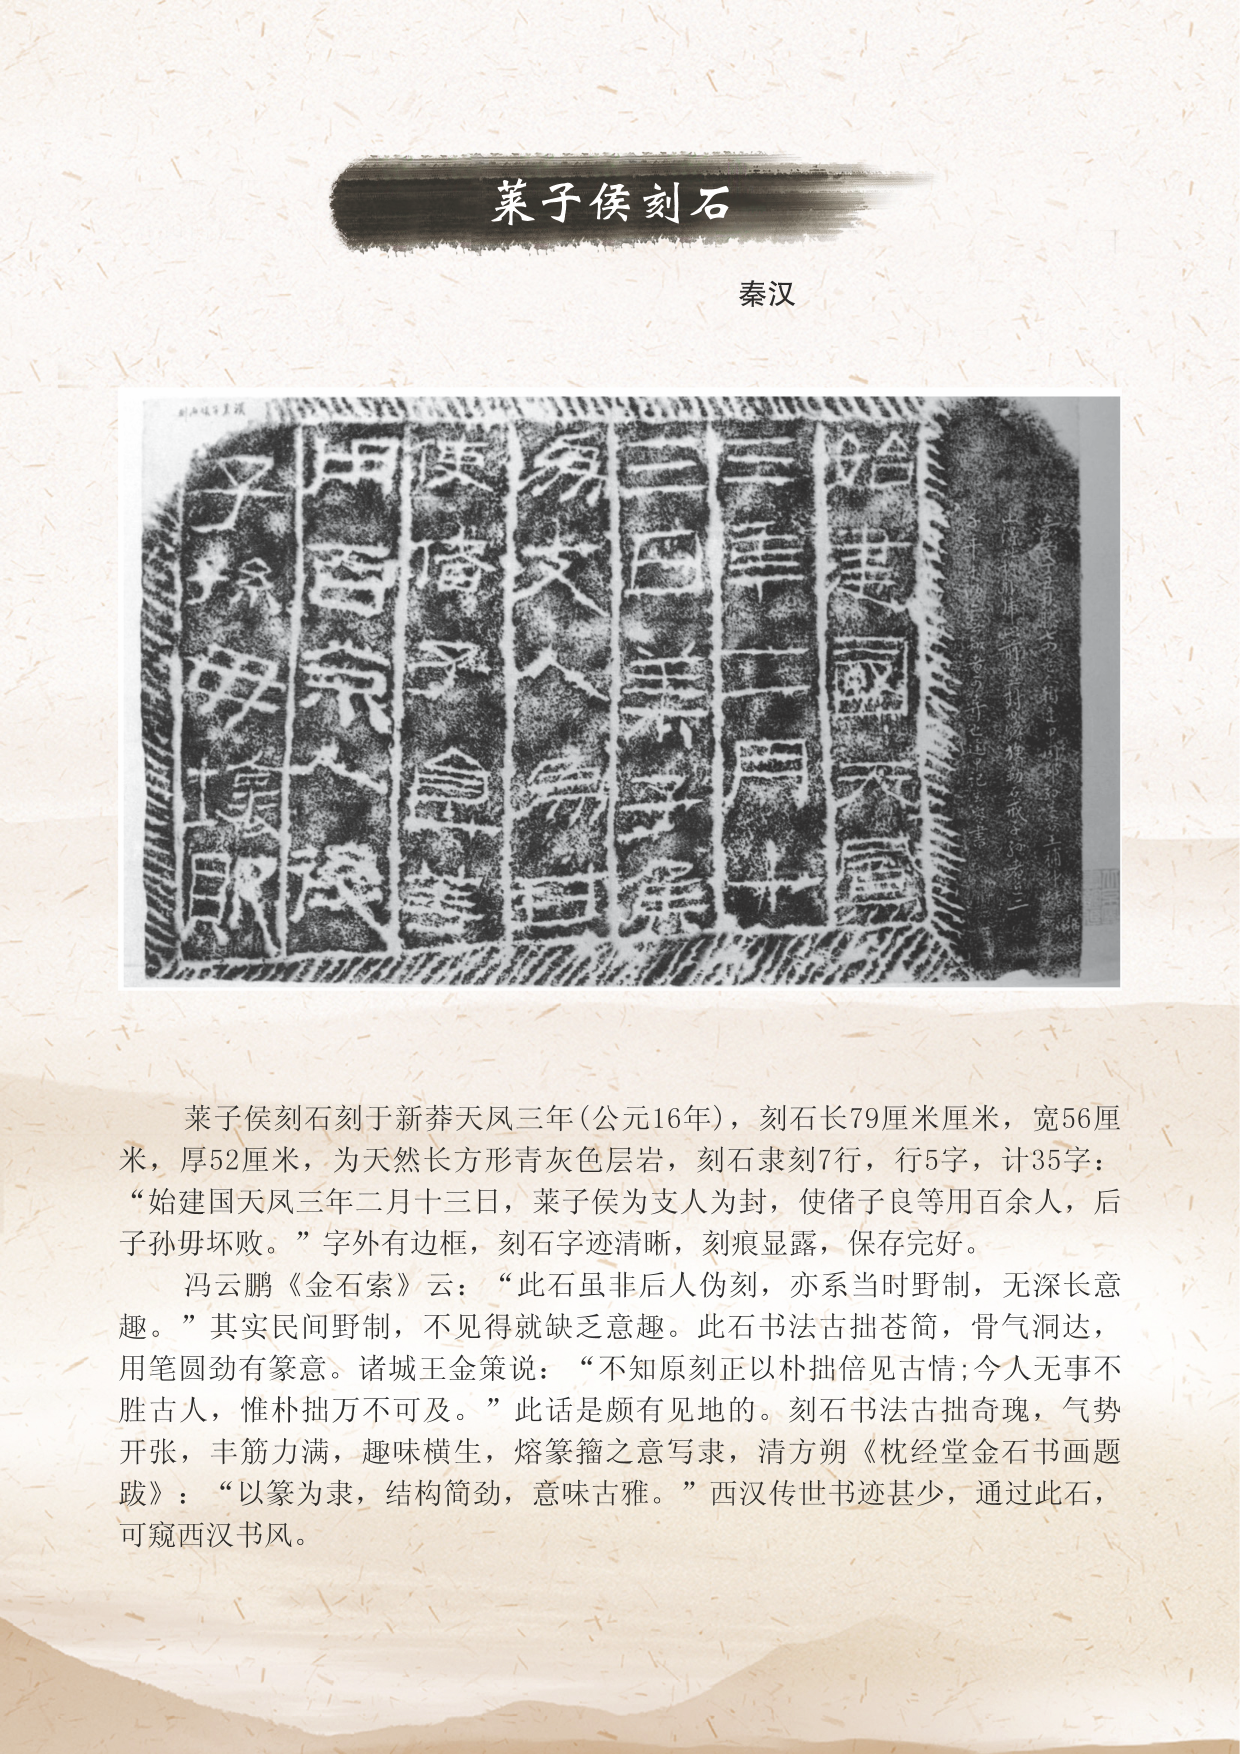 莱子侯刻石
秦汉
始建國天鳳
三年二月十
三日萊子侯
為支人為封
使偖子食等
用百余人後
子孫毋壞敗
莱子侯刻石刻于新莽天凤三年(公元16年)，刻石长79厘米厘米，宽56厘
米，厚52厘米，为天然长方形青灰色层岩，刻石隶刻7行，行5字，计35字：
“始建国天凤三年二月十三日，莱子侯为支人为封，使偖子良等用百余人，后
子孙毋坏败。”字外有边框，刻石字迹清晰，刻痕显露，保存完好。
冯云鹏《金石索》云：“此石虽非后人伪刻，亦系当时野制，无深长意
趣。”其实民间野制，不见得就缺乏意趣。此石书法古拙苍简，骨气洞达，
用笔圆劲有篆意。诸城王金策说：“不知原刻正以朴拙倍见古情;今人无事不
胜古人，惟朴拙万不可及。”此话是颇有见地的。刻石书法古拙奇瑰，气势
开张，丰筋力满，趣味横生，熔篆籀之意写隶，清方朔《枕经堂金石书画题
跋》：“以篆为隶，结构简劲，意味古雅。”西汉传世书迹甚少，通过此石，
可窥西汉书风。